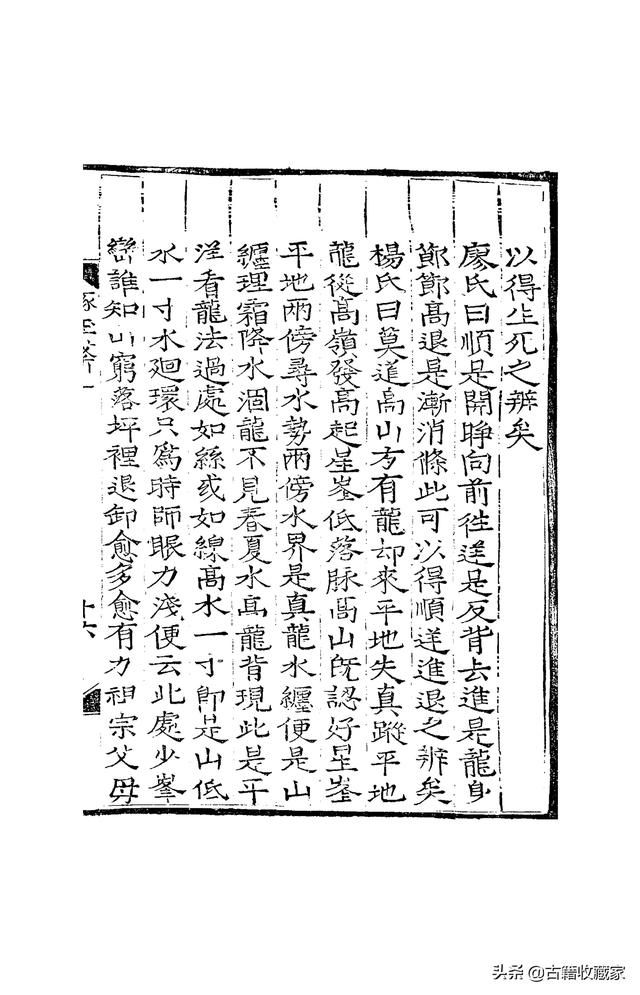 以得生死之辨矣
廖氏曰順是開睁向前徃逆是反背去進是龍身
節節高退是漸消條此可以得順逆進退之辨矣
楊氏曰莫道高山方有龍却來平地失真蹤平地
龍從高嶺發高起星峯低落脉高山既認好星峯
平地兩傍尋水勢兩傍水界是真龍水纏便是山
纏理霜降水涸龍不見春夏水高龍背現此是平
洋看龍法過處如絲或如線高水一寸即是山低
水一寸水廻環只爲時師眼力淺便云此處少峯
巒誰知山窮落坪裡退卸愈多愈有力祖宗父母
十六
头条@古籍收藏家